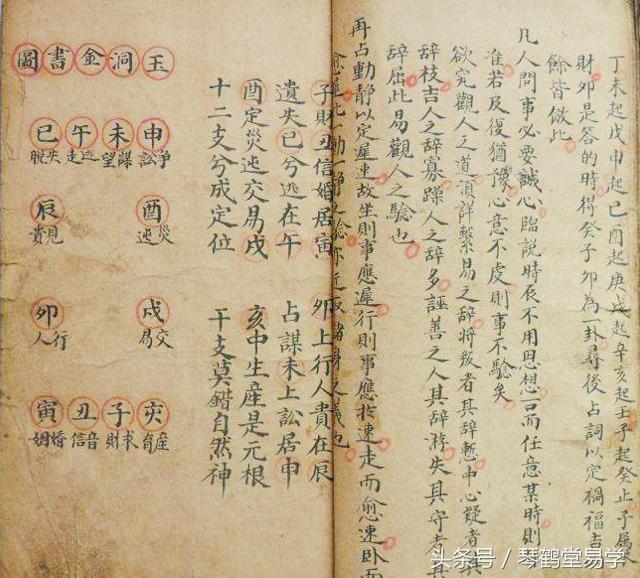 丁未起戊申起己酉起庚戌起辛亥起壬子起癸止子屬
財卯是答的時得癸子卯為一卦尋後占詞以定禍福吉
餘皆倣此
凡人問事必要誠心臨說時辰不用思想言而任意某時則
准若及復猶豫心意不虔則事不驗矣
欲究觀人之道須詳繫易之辭將叛者其辭慙中心疑者其
辭枝吉人之辭寡躁人之辭多誣善之人其辭游失其守者其
辭屈此易觀人之驗也
再占動靜以定遲速故坐則事應遲行則事應於速走而愈速臥而
愈遲此一動一靜之驗亦近取諸身之義也
子財丑信婚居寅 卯上行人貴在辰
遺失巳兮逃在午 占謀未上訟居申
酉定災迍交易戌 亥中生產是元根
十二支兮成定位 干支莫錯自然神
玉洞金書圖
申 爭訟
未 謀望
午 逃走
巳 失脫
酉 災迍
辰 見貴
戌 交易
卯 行人
亥 產育
子 求財
丑 音信
寅 婚姻
头条号／琴鹤堂易学